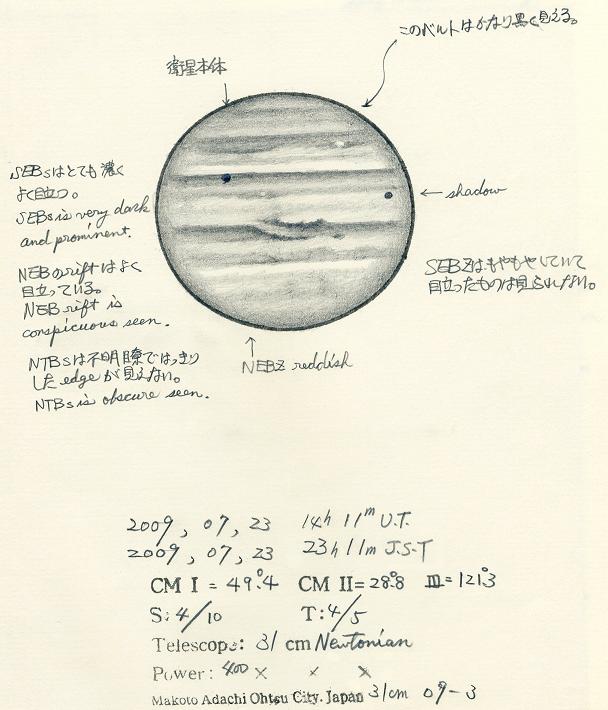 このベルトはかなり黒く見える。
衛星本体
SEBsはとても濃く
よく目立つ。
SEBs is very dark
and prominent.
← shadow
NEBのriftはよく
目立っている。
NEB rift is
conspicuous seen.
SEBZはもやもやしていて
目立ったものは見られない。
NTBsは不明瞭ではっきり
したedgeが見えない。
NTBs is obscure seen.
↑
NEBZ reddish
2009, 07, 23 14h 11m U.T.
2009, 07, 23 23h 11m J.S.T
CM I = 49°.4 CM II= 28°.8 III=121°.3
S: 4/10 T: 4/5
Telescope: 31 cm Newtonian
Power: 400 × × ×
Makoto Adachi Ohtsu City. Japan 31cm 09-3